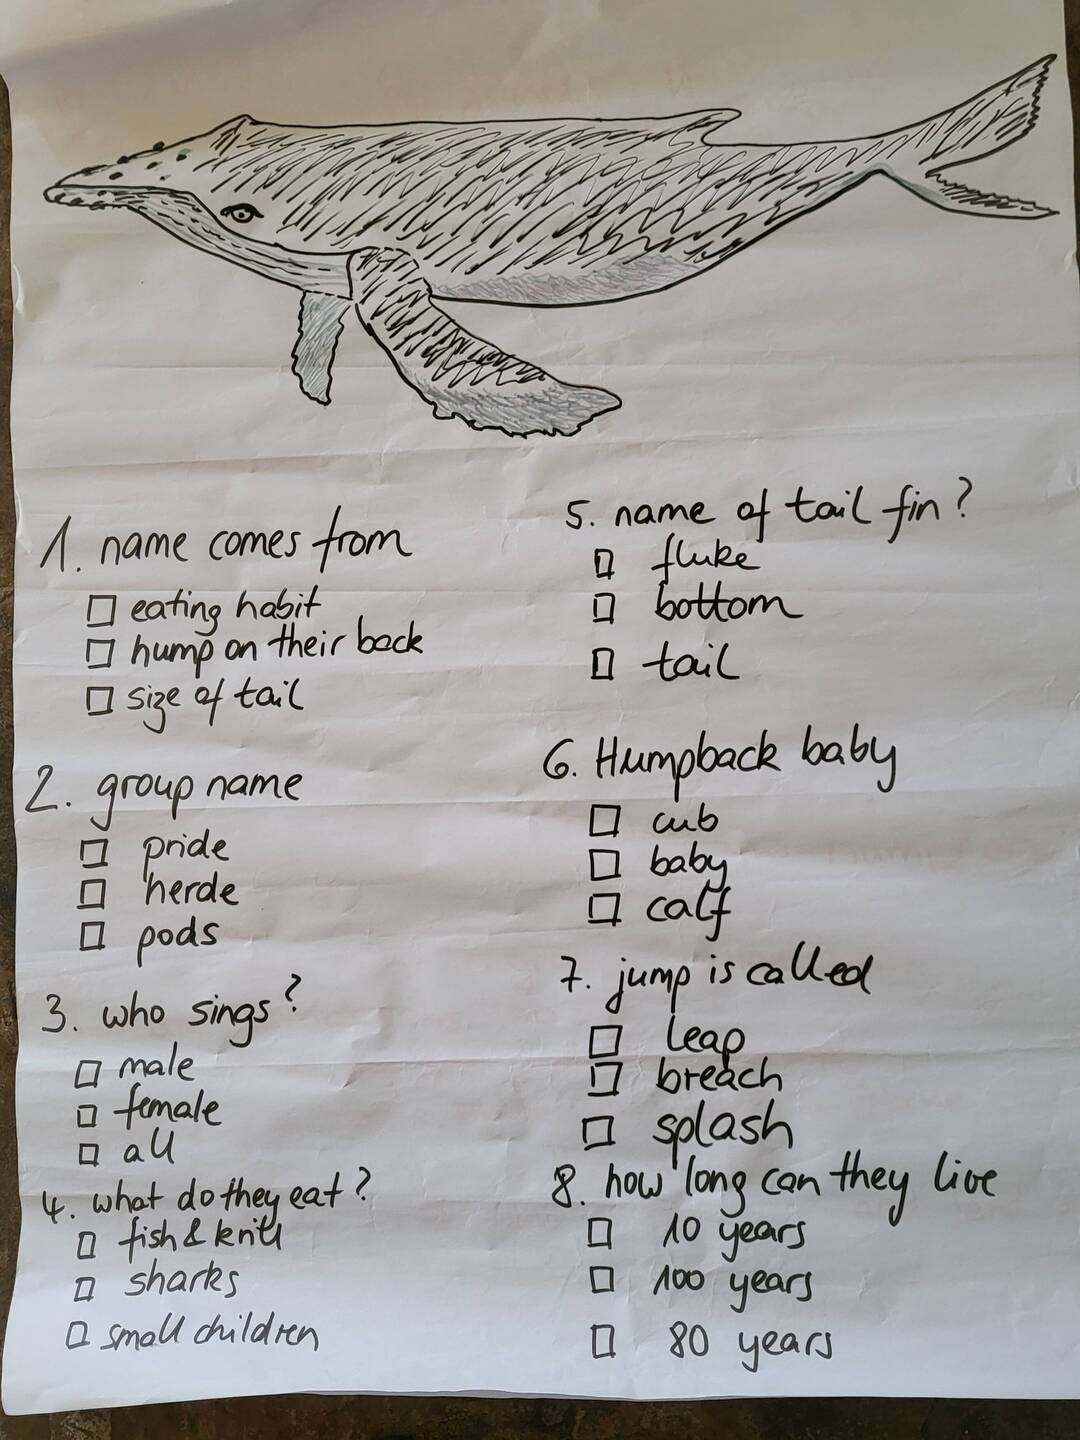 1. name comes from
eating habit
hump on their back
size of tail
2. group name
pride
herde
pods
3. who sings?
male
female
all
4. what do they eat?
fish & krill
sharks
small children
5. name of tail fin?
fluke
bottom
tail
6. Humpback baby
cub
baby
calf
7. jump is called
leap
breach
splash
8. how long can they live
10 years
100 years
80 years